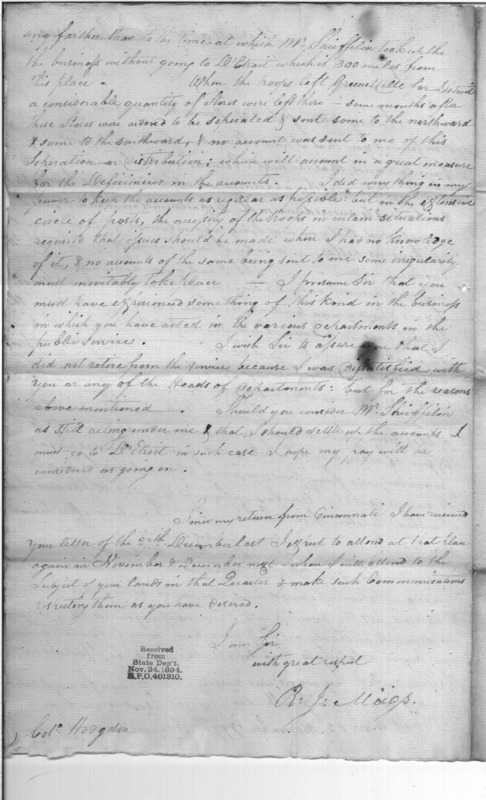 any farther than to the time at which Mr. Shieffelin took up the
the business without going to D'Etroit which is 300 miles from
this place. When the troops left Greeneville for Detroit
a considerable quantity of Stores were left there - some months after
these Stores were ordered to be seperated & sent some to the northward
& some to the southward, & no account was sent to me of this
Seperation or Distribution; which will account in a great measure
for the Deficiencies in the accounts. I did everything in my
power to keep the accounts as regular as possible: but in the extensive
circle of posts, the necessity of the troops in certain situations
required that issues should be made where I had no knowledge
of it, & no accounts of the same being sent to me some irregularity
must inevitably take place - I presume Sir that you
must have experienced something of this kind in the business
in which you have acted in the various departments in the
public Service. I wish Sir to assure you that I
did not retire from the service because I was dissatisfied with
you or any of the Heads of Departments: but for the reasons
above mentioned. Should you consider Mr. Shieffelin
as still acting under me & that I should settle up the accounts I
must go to D'Etroit in such case I hope my pay will be
considered as going on.
Since my return from Cincinnati I have received
your letter of the 27th December last I expect to attend at that place
again in November & December next when I will attend to the
subject of your lands in that Quarter & make such Communications
respecting them as you have desired.
I am Sir
with great respect
R. J. Meigs.
Received
from
State Dep't.
Nov. 24. 1894.
R.P.O. 401310.
Colo. Hodgdon